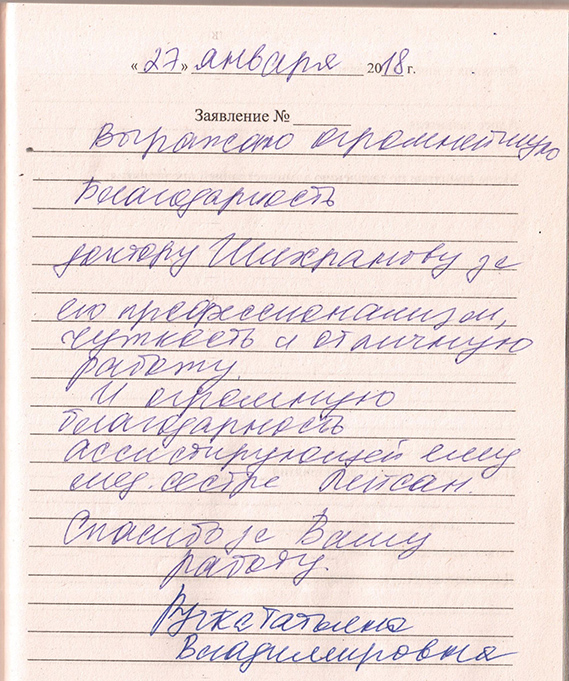 «27» января 2018 г.
Заявление №
Выражаю огромнейшую
благодарность
доктору Шихранову за
его профессионализм,
чуткость и отличную
работу.
И огромную
благодарность
ассистирующей ему
мед. сестре Лейсан.
Спасибо за Вашу
работу.
Татьяна
Владимировна